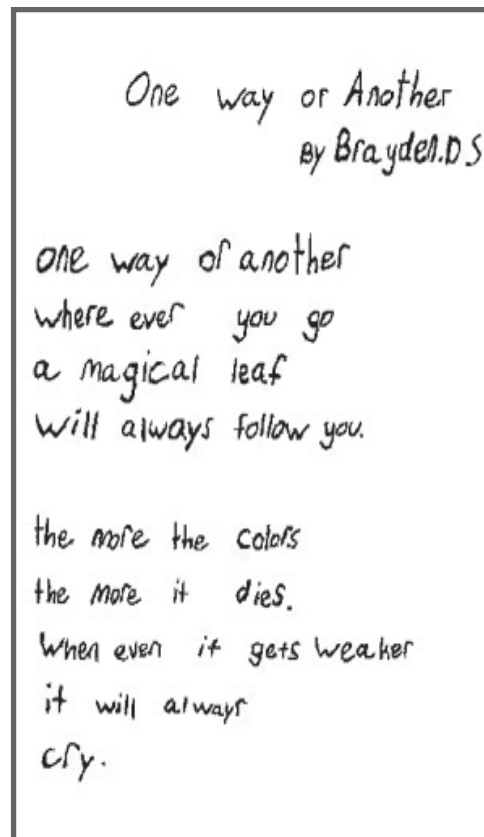 One way or Another
By Brayden.D S
one way or another
where ever you go
a magical leaf
will always follow you.
the more the colors
the more it dies.
When even it gets weaker
it will always
cry.